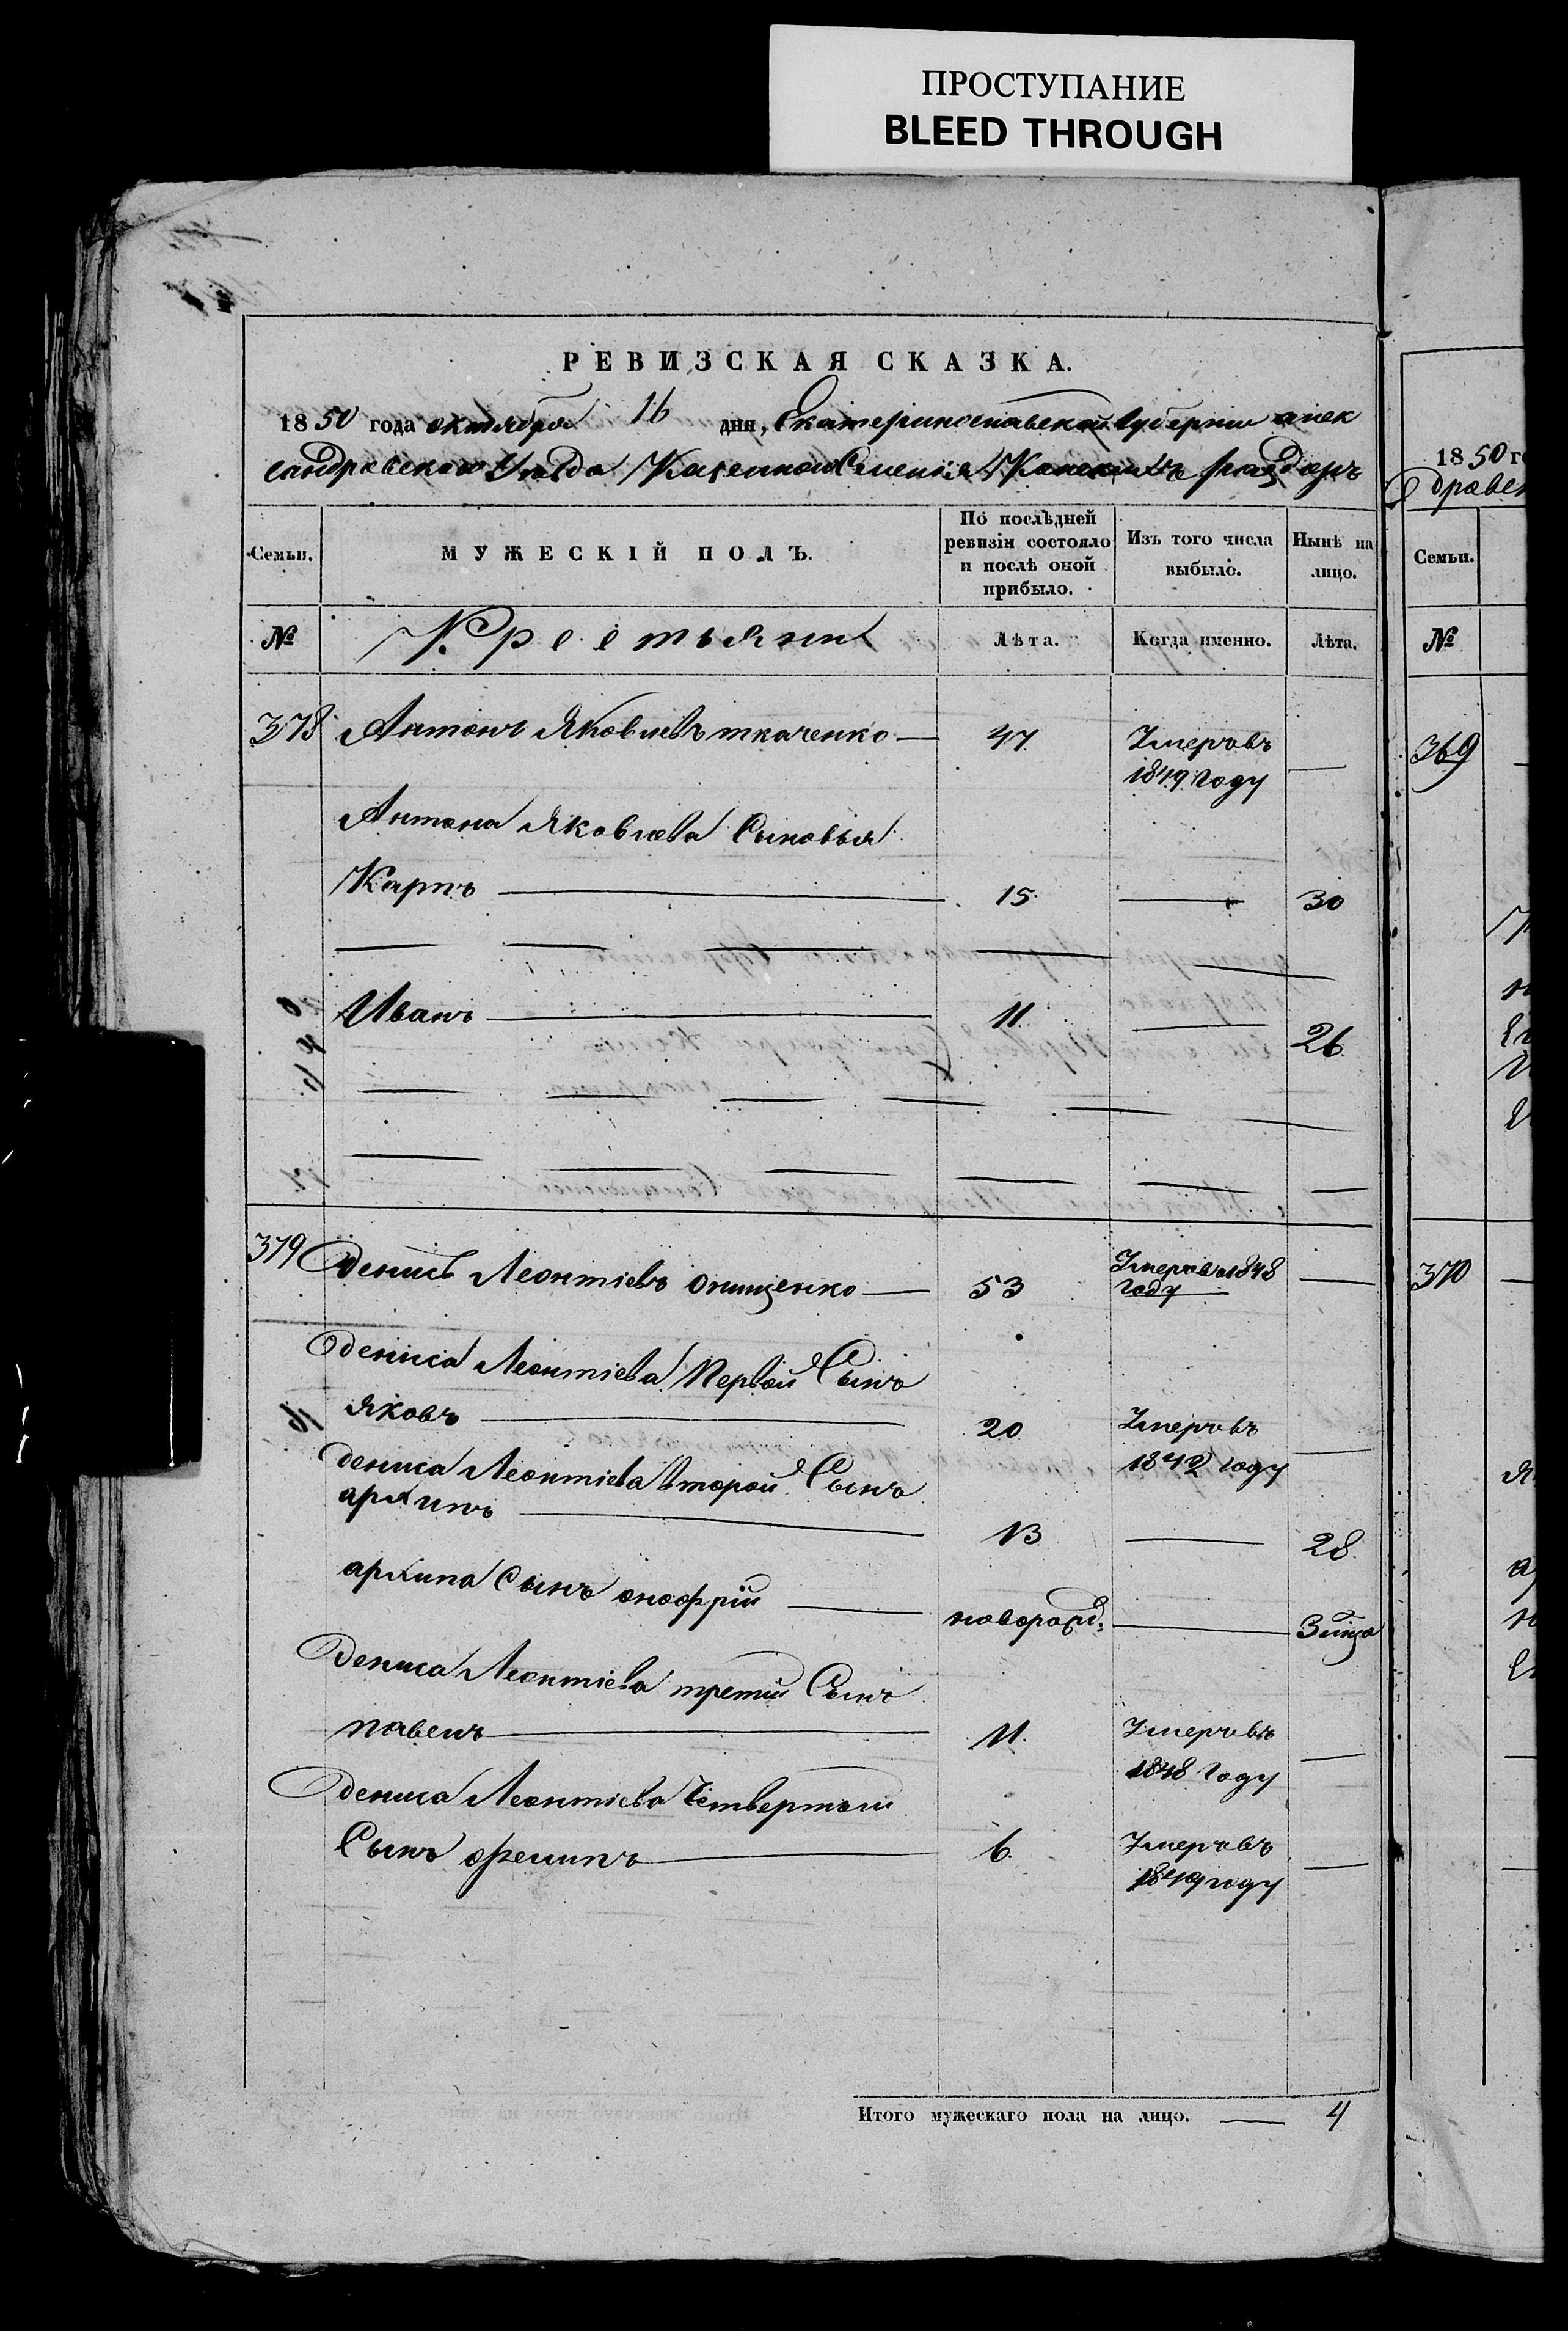 ПРОСТУПАНИЕ
BLEED THROUGH
РЕВИЗСКАЯ СКАЗКА.
1850 года октября 16 дня, Екатеринославской Губернии алек
сандровского Уѣзда Казенной Селенія Конскихъ раздоръ
Семьи.
МУЖЕСКІЙ ПОЛЪ.
По послѣдней ревизіи состояло и послѣ оной прибыло.
Изъ того числа выбыло.
Нынѣ на лицо.
№ Крестьяни Лѣта. Когда именно. Лѣта.
378 Антонъ Яковлевъ ткаченко — 47 Умеръ въ
1849 Году —
Антона Яковлева Сыновья
Карпъ — 15. — 30
Иванъ — 11. — 26
379 Денисъ Леонтіевъ онищенко — 53 Умеръ въ 1848
Году —
Дениса Леонтіева Первой Сынъ
Яковъ — 20 Умеръ въ
1842 году —
Дениса Леонтіева второй Сынъ
архипъ — 13 — 28.
архипа Сынъ онофрій — новорожд: —
Дениса Леонтіева третій Сынъ
павелъ — 11. Умеръ въ
1848 Году —
Дениса Леонтіева Четвертый
Сынъ филипъ — 6. Умеръ въ
1849 году —
Итого мужескаго пола на лицо. — 4
1850 го
дровск
Семьи.
№
369
370